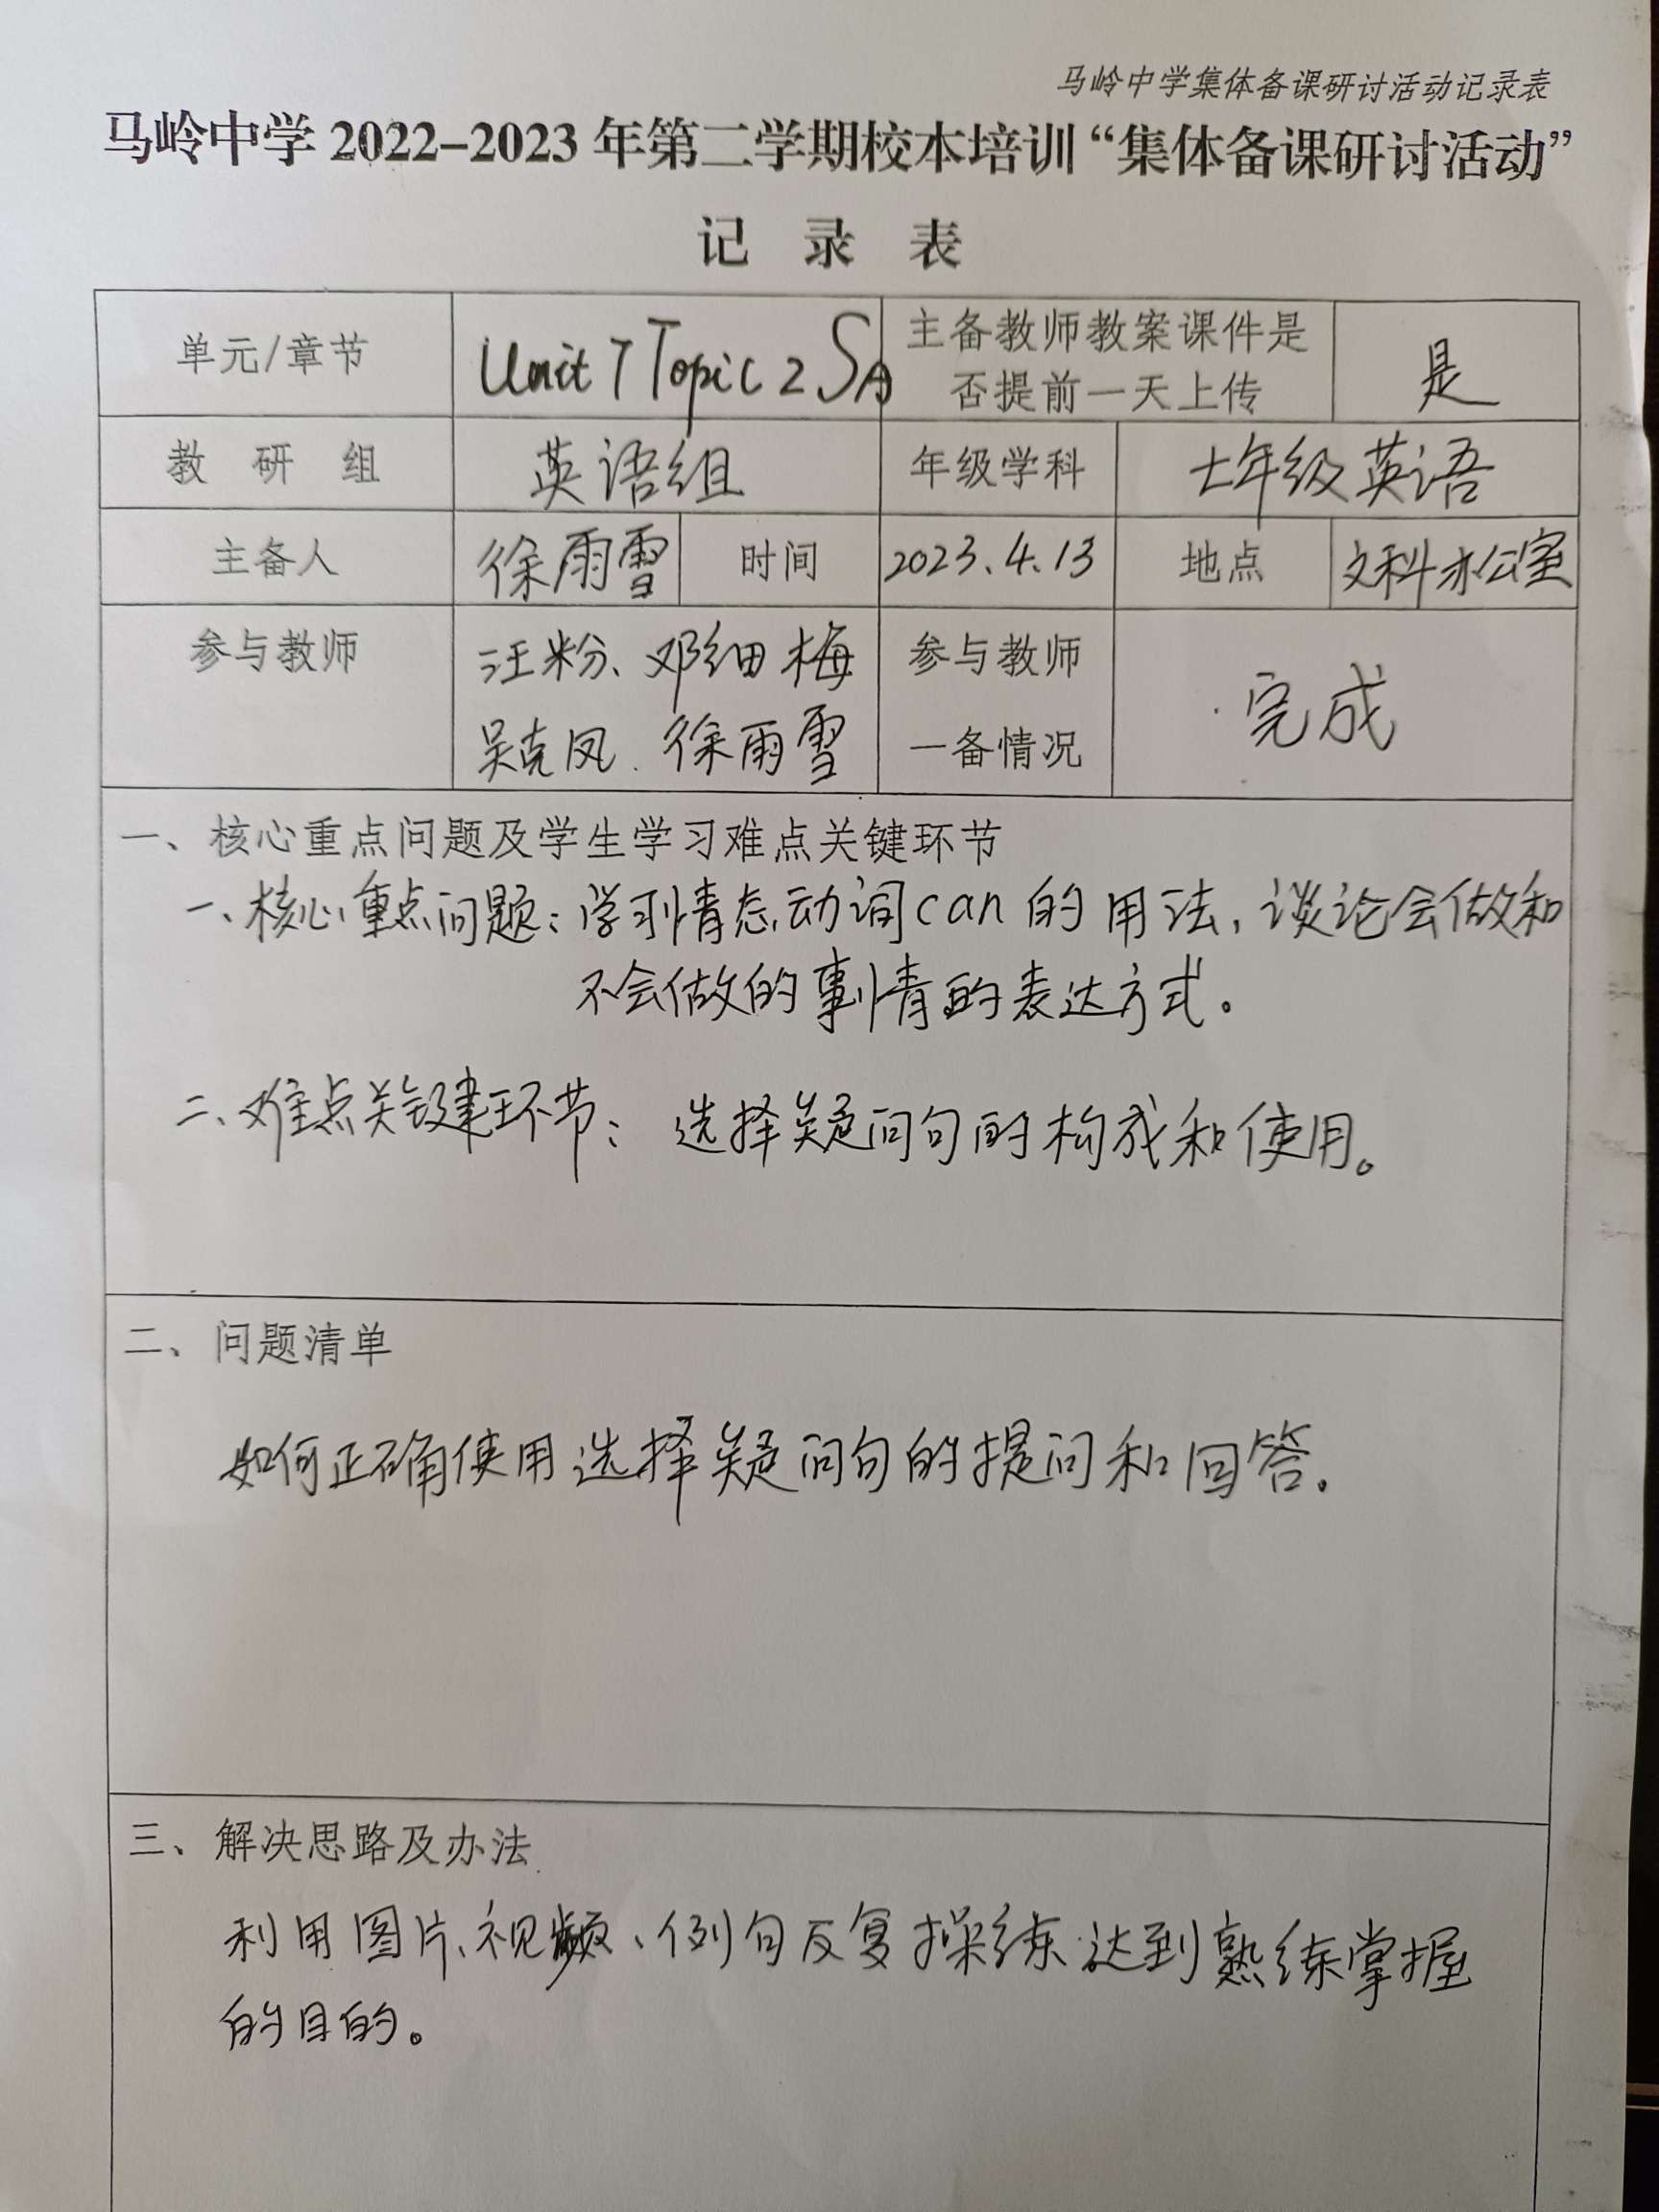 马岭中学集体备课研讨活动记录表
马岭中学 2022-2023 年第二学期校本培训“集体备课研讨活动”
记 录 表
单元/章节 Unit 7 Topic 2 SA 主备教师教案课件是否提前一天上传 是
教 研 组 英语组 年级学科 七年级英语
主备人 徐雨雪 时间 2023.4.13 地点 文科办公室
参与教师 汪粉、邓细梅 参与教师 完成
吴克凤、徐雨雪 一备情况
一、核心重点问题及学生学习难点关键环节
一、核心重点问题：学习情态动词can的用法，谈论会做和
不会做的事情的表达方式。
二、难点关键环节：选择疑问句的构成和使用。
二、问题清单
如何正确使用选择疑问句的提问和回答.
三、解决思路及办法
利用图片、视频、例句反复操练.达到熟练掌握
的目的。